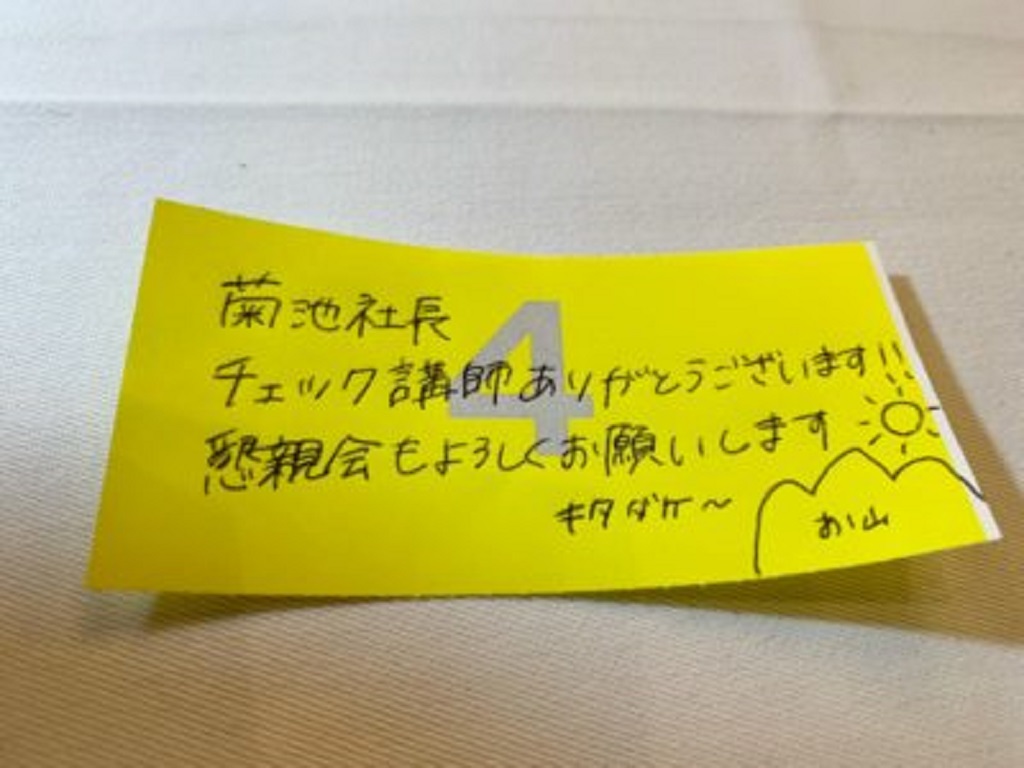 菊池社長
4
チェック講師ありがとうございます!!
懇親会もよろしくお願いします
キタダケ〜
お山